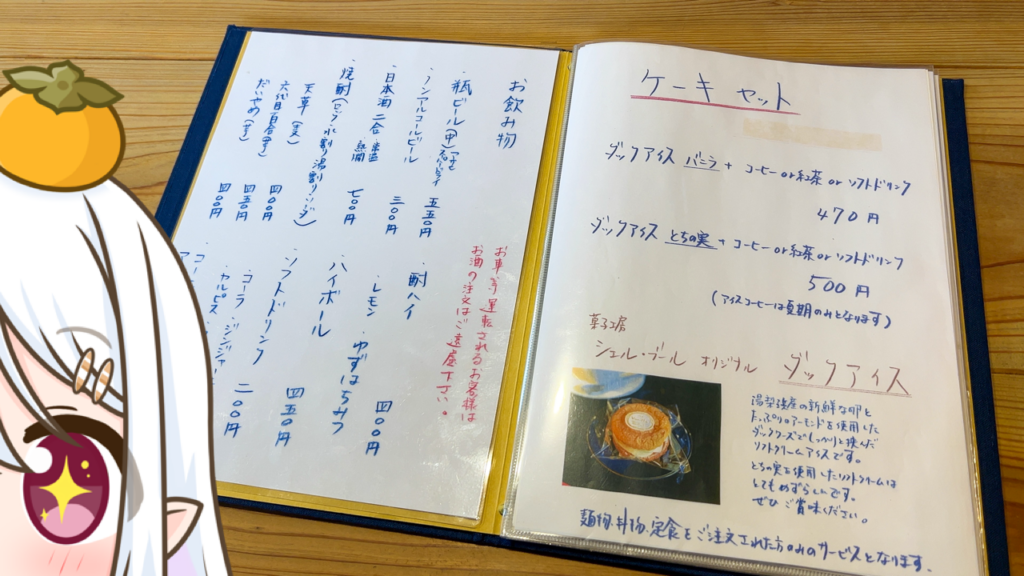 お飲み物
・瓶ビール(中) 五五〇円
・ノンアルコールビール 三〇〇円
・日本酒 二合 熱燗 七〇〇円
・焼酎(ロック,水割り,湯割り,ソーダ)
天草(麦) 四〇〇円
六代目百合(芋) 四五〇円
だいやめ(芋) 四〇〇円
お車等運転されるお客様は
お酒の注文はご遠慮下さい。
・酎ハイ
レモン・ゆずはちみつ 四〇〇円
・ハイボール 四五〇円
・ソフトドリンク 二〇〇円
コーラ・ジンジャー
カルピス
ケーキセット
ダックアイス バニラ + コーヒー or 紅茶 or ソフトドリンク
470円
ダックアイス とちの実 + コーヒー or 紅茶 or ソフトドリンク
500円
(アイスコーヒーは夏期のみとなります)
菓子工房
シェル・ブール オリジナル ダックアイス
湯梨浜産の新鮮な卵と
たっぷりのアーモンドを使用した
ダックワーズでしっかりと挟んだ
ソフトクリームアイスです。
とちの実を使用したソフトクリームは
とてもめずらしいです。
ぜひご賞味ください。
麺物、丼物、定食をご注文された方のみのサービスとなります。